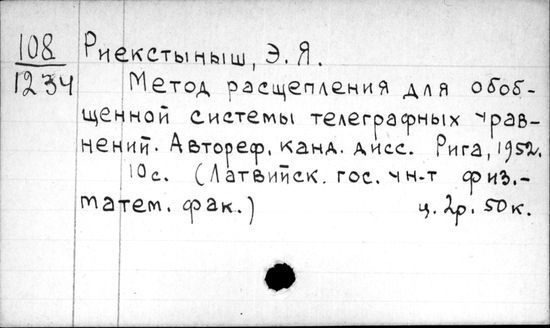 108 Риекстыньш, Э. Я.
1234 Метод расщепления для обоб-
щенной системы телеграфных урав-
нений. Автореф. канд. дисс. Рига, 1952.
10с. (Латвийск. гос. ун-т физ.-
матем. фак.) ц. 2р. 50к.